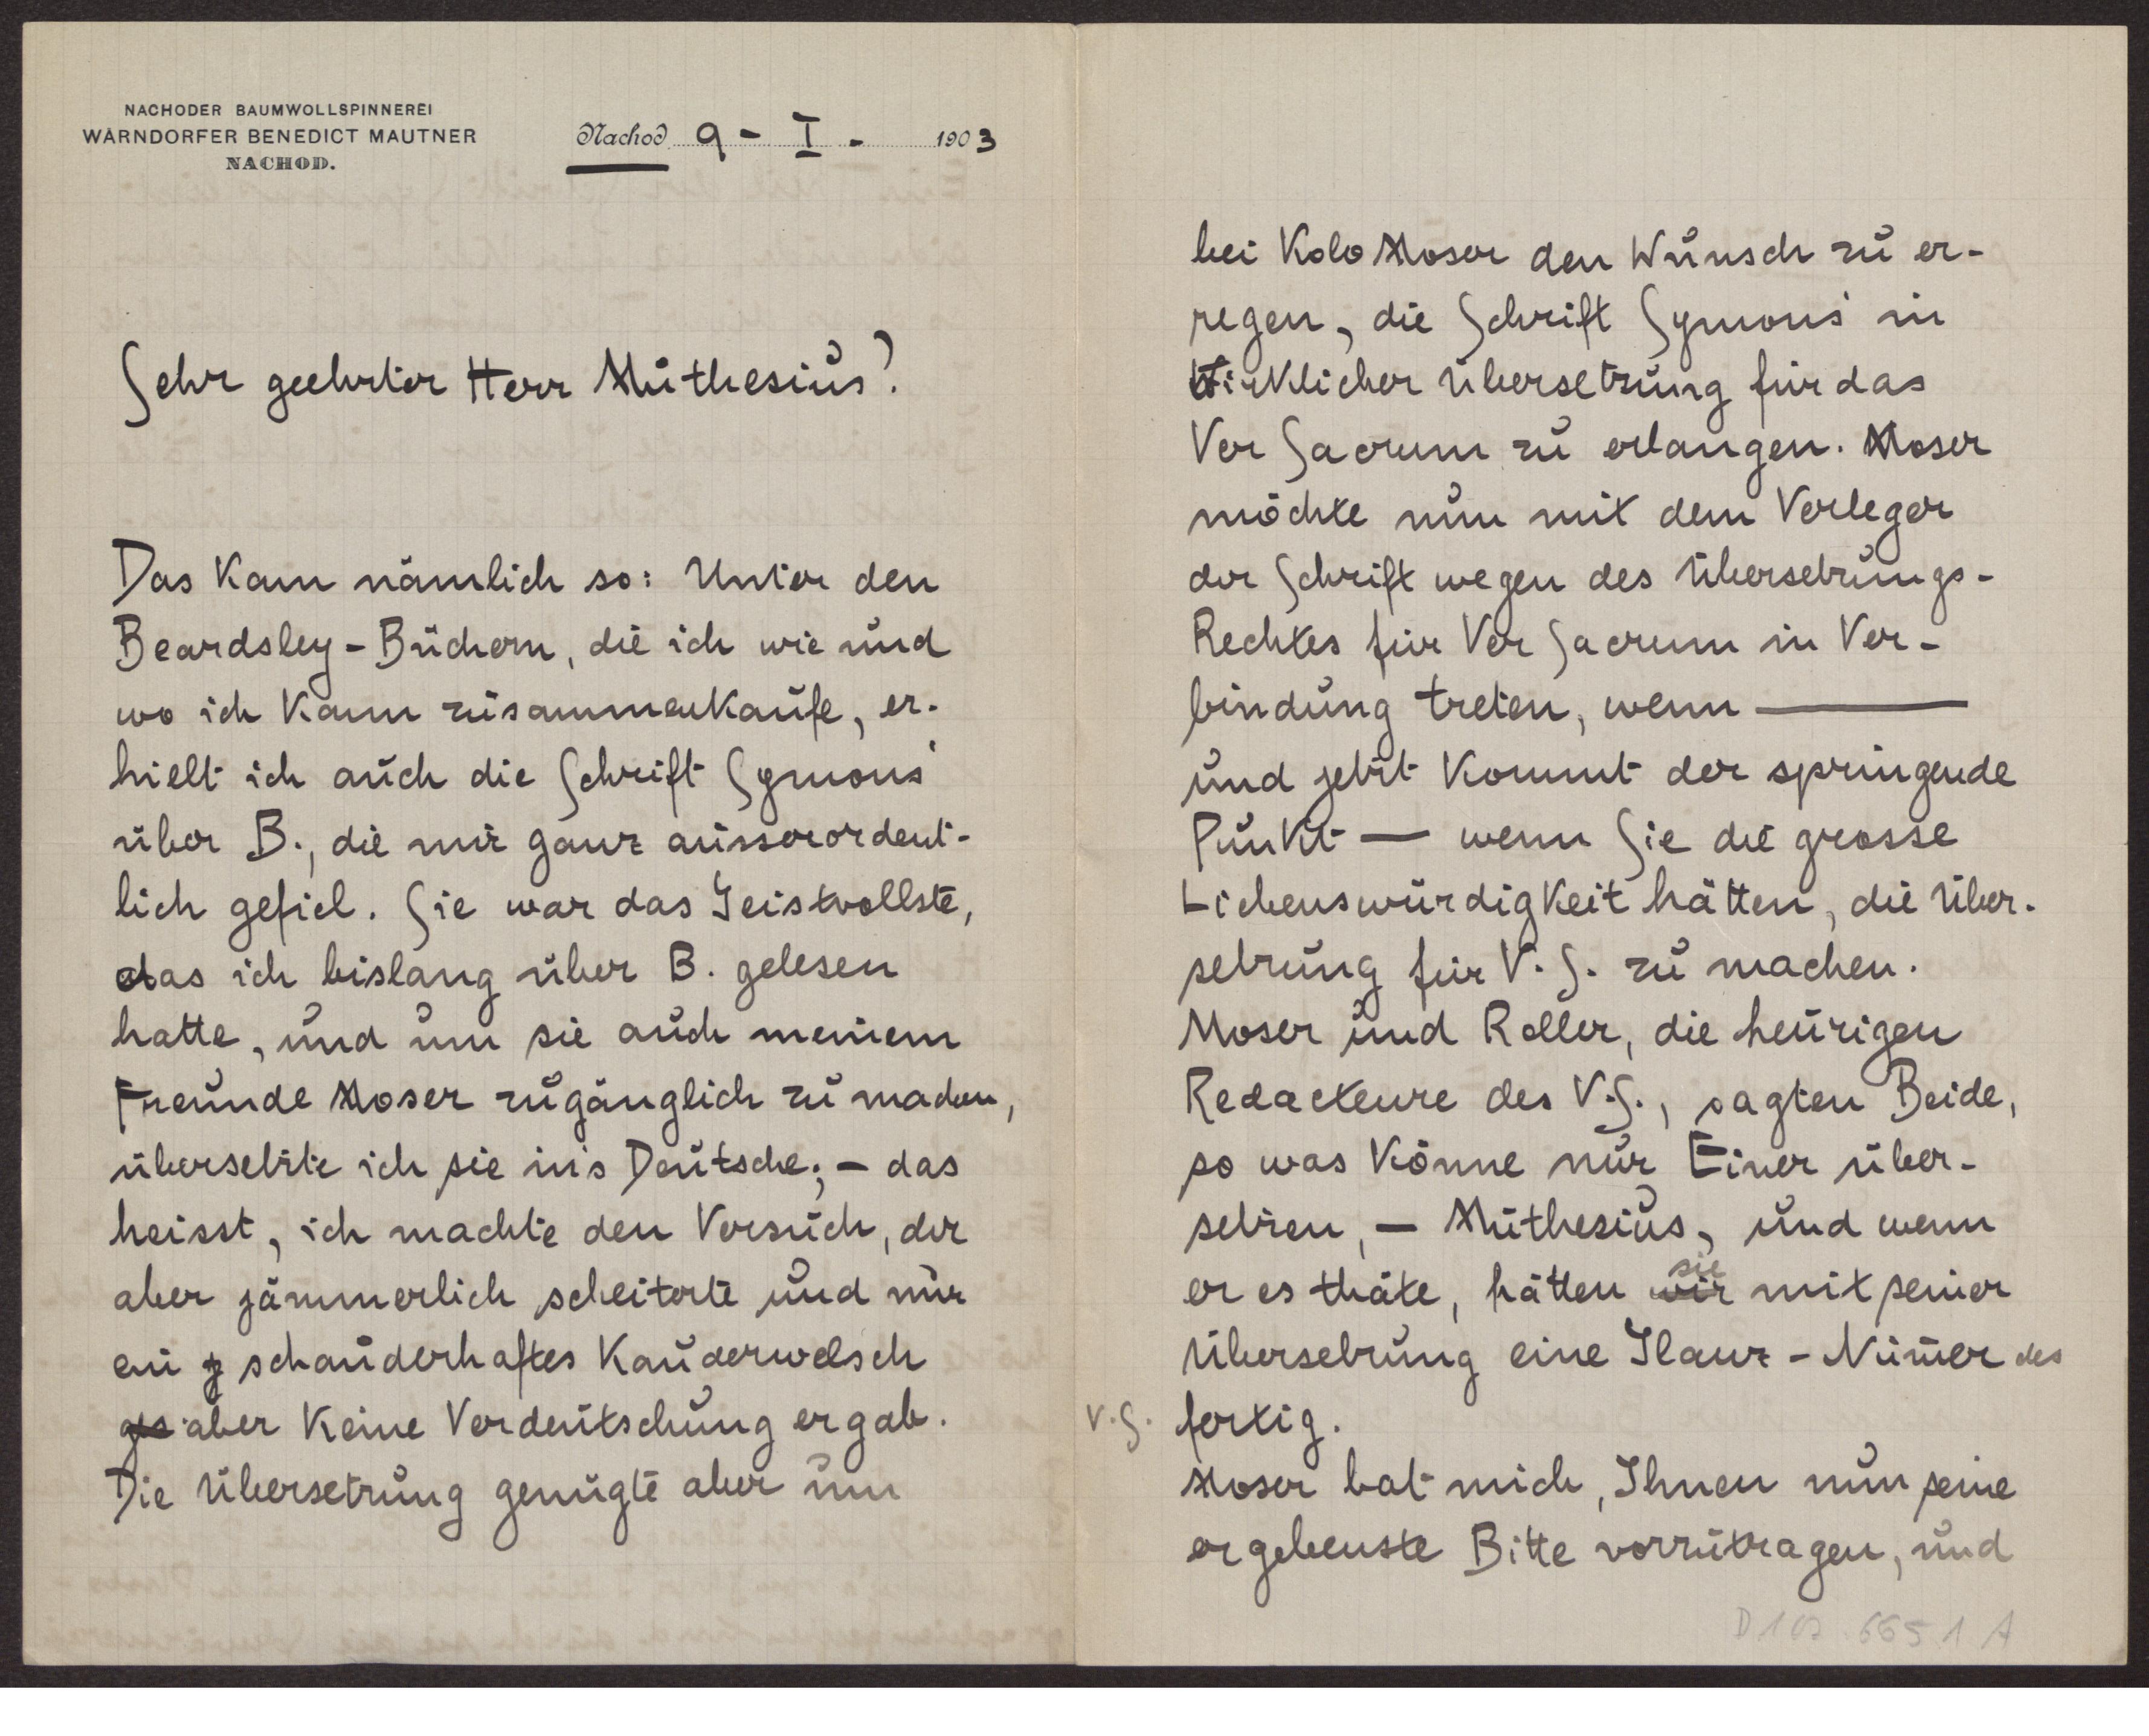 NACHODER BAUMWOLLSPINNEREI
WÄRNDORFER BENEDICT MAUTNER
NACHOD.
Nachod 9 - I - 1903
Sehr geehrter Herr Muthesius!
Das kam nämlich so: Unter den
Beardsley-Büchern, die ich wie und
wo ich kann zusammenkaufe, er-
hielt ich auch die Schrift Symons'
über B., die mir ganz ausserordent-
lich gefiel. Sie war das Geistvollste,
das ich bislang über B. gelesen
hatte, und um sie auch meinem
Freunde Moser zugänglich zu machen,
übersetzte ich sie in's Deutsche; – das
heisst, ich machte den Versuch, der
aber jämmerlich scheiterte und nur
ein schauderhaftes Kauderwelsch
aber keine Verdeutschung ergab.
Die Übersetzung genügte aber um
bei Kolo Moser den Wunsch zu er-
regen, die Schrift Symons' in
wirklicher Übersetzung für das
Ver Sacrum zu erlangen. Moser
möchte nun mit dem Verleger
der Schrift wegen des Übersetzungs-
Rechtes für Ver Sacrum in Ver-
bindung treten, wenn ———
und jetzt kommt der springende
Punkt — wenn Sie die grosse
Liebenswürdigkeit hätten, die Über-
setzung für V. S. zu machen.
Moser und Roller, die heurigen
Redacteure des V.S., sagten Beide,
so was könne nur Einer über-
setzen, – Muthesius, und wenn
er es thäte, hätten wir sie mit seiner
Übersetzung eine Glanz-Num̄er des
V.S. fertig.
Moser bat mich, Ihnen nun seine
ergebenste Bitte vorzutragen, und
D 102 - 6651 A